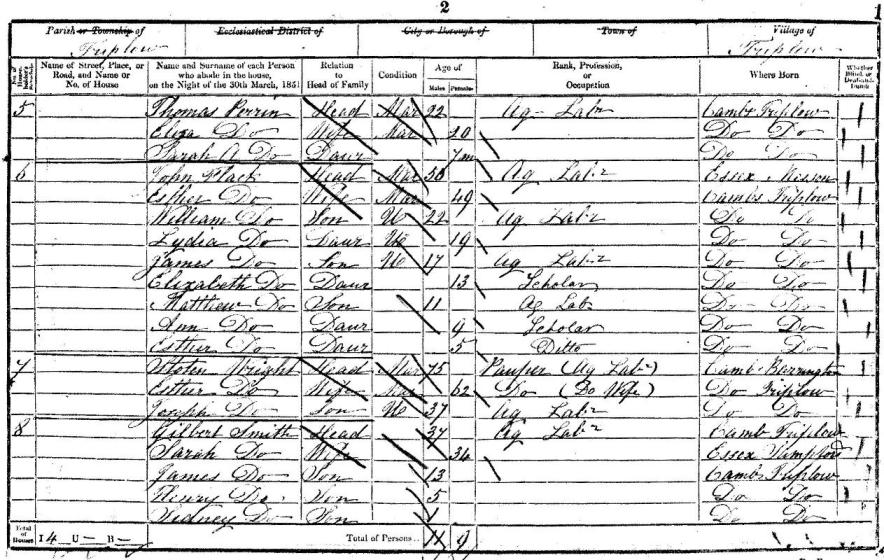 2
1
Parish or Township of Ecclesiastical District of City or Borough of Town of Village of
Triplow Triplow
No. of Householder's Schedule Name of Street, Place, or Road, and Name or No. of House Name and Surname of each Person who abode in the house, on the Night of the 30th March, 1851 Relation to Head of Family Condition Age of Males Females Rank, Profession, or Occupation Where Born Whether Blind, or Deaf-and-Dumb
5 Thomas Perrin Head Mar 22 Ag Labr Cambs Triplow
Eliza Do Wife Mar 20 Do Do
Sarah A Do Daur 7m Do Do
6 John Head Mar 50 Ag Labr Essex
Esther Do Wife Mar 49 Cambs Triplow
William Do Son U 22 Ag Labr Do Do
Lydia Do Daur U 19 Do Do
James Do Son U 17 Ag Labr Do Do
Elizabeth Do Daur 13 Scholar Do Do
Matthew Do Son 11 Ag Lab Do Do
Ann Do Daur 9 Scholar Do Do
Esther Do Daur 5 Ditto Do Do
7 Wright Head Mar 75 Pauper (Ag Labr) Camb Barrington
Esther Do Wife Mar 62 Do (Do Wife) Do Triplow
Joseph Do Son U 37 Ag Labr Do Do
8 Gilbert Smith Head 37 Ag Labr Camb Triplow
Sarah Do Wife 34 Essex
James Do Son 13 Cambs Triplow
Henry Do Son 5 Do Do
Sidney Do Son 1 Do Do
Total of Houses I 4 U — B — Total of Persons.. 11 9